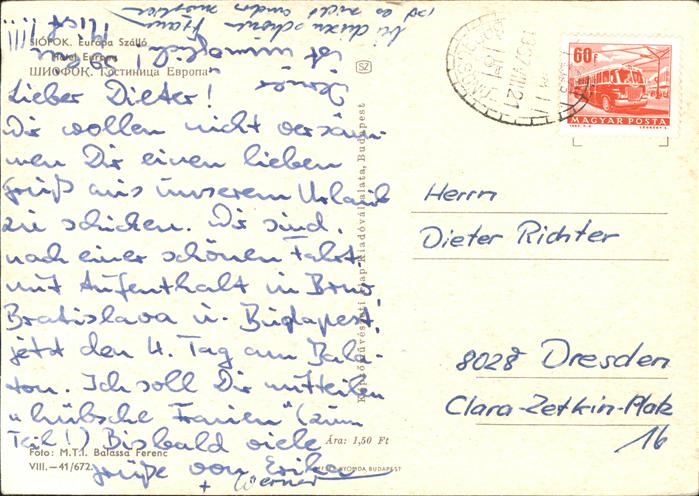 SIÓFOK. Európa Szálló
Hotel Europa
ШИОФОК. Гостиница Европа
SZ
Lieber Dieter!
Wir wollen nicht versäu-
men Dir einen lieben
Gruß aus unserem Urlaub
zu schicken. Wir sind,
nach einer schönen Fahrt
mit Aufenthalt in Brno
Bratislava u. Budapest,
jetzt den 4. Tag am Bala-
ton. Ich soll Dir mitteilen
"hübsche Frauen" (zum
Teil!) Bis bald viele
Grüße von Erika
+ Werner
Foto: M.T.I. Balassa Ferenc
VIII.—41/672.
Ára: 1,50 Ft
NYOMDA, BUDAPEST
Képzőművészeti Alap Kiadóvállalata, Budapest
60f
MAGYAR POSTA
Herrn
Dieter Richter
8028 Dresden
Clara-Zetkin-Platz
16